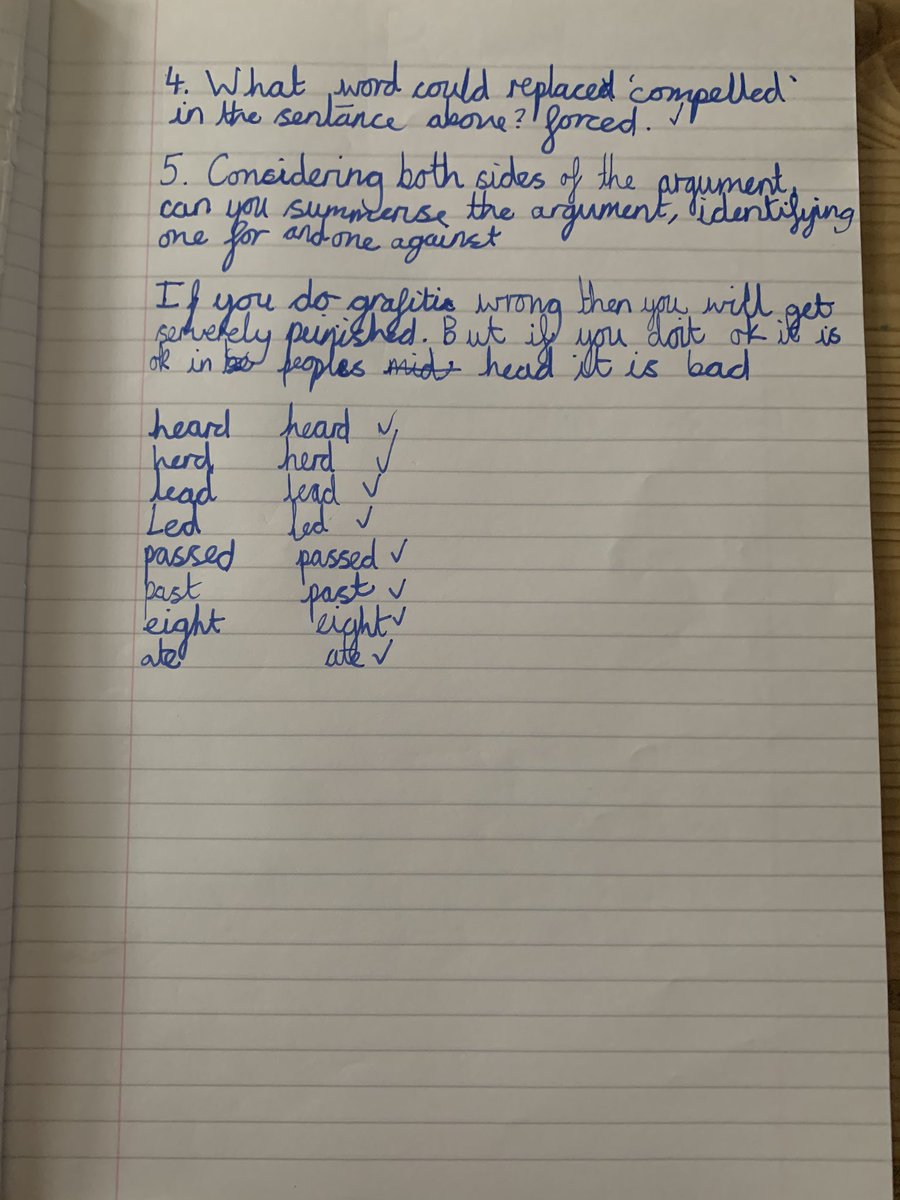 4. What word could replaced 'compelled'
in the sentance above? forced. ✓
5. Considering both sides of the argument,
can you summerise the argument, identifying
one for and one against
If you do grafitie wrong then you will get
serverely punished. But if you doit ok it is
ok in peoples mid head it is bad
heard heard ✓
herd herd ✓
lead lead ✓
Led led ✓
passed passed ✓
past past ✓
eight eight ✓
ate ate ✓